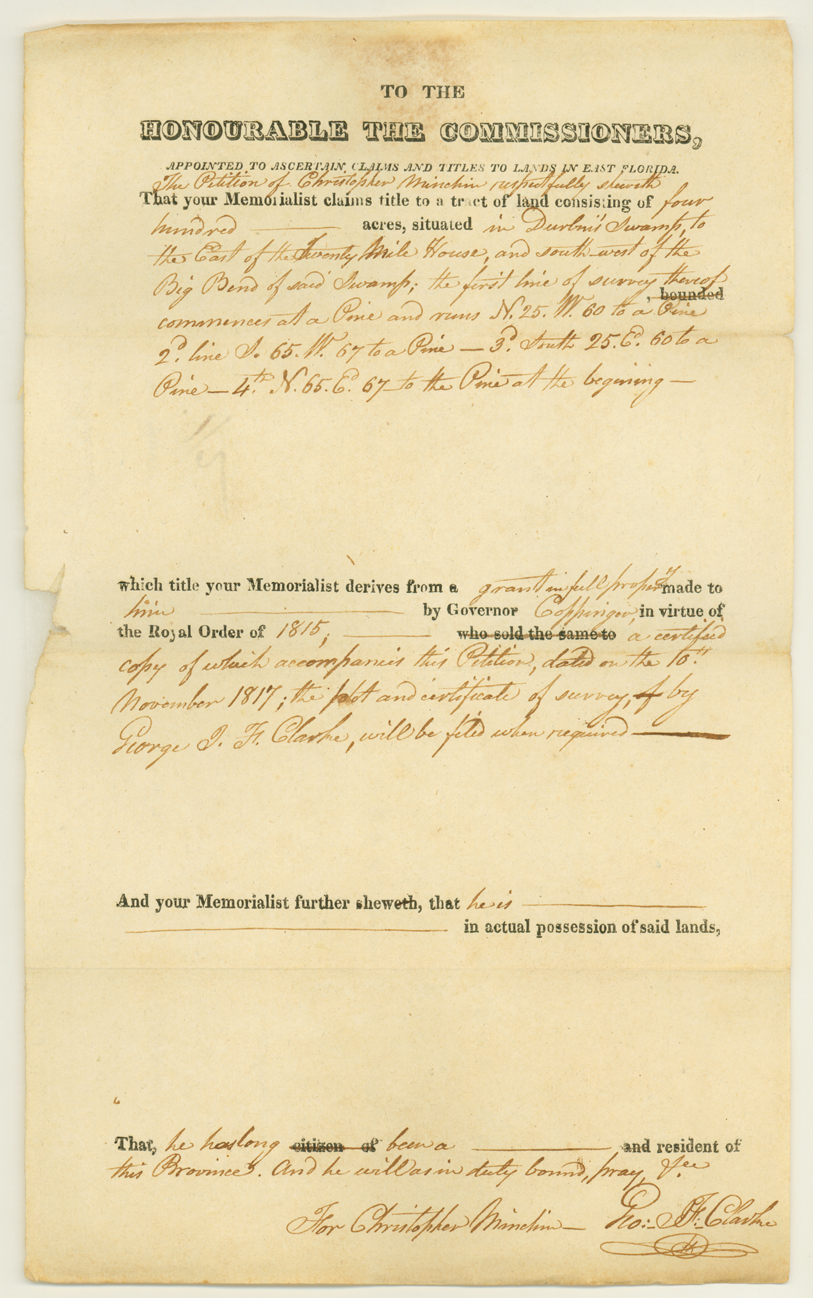 TO THE
HONOURABLE THE COMMISSIONERS,
APPOINTED TO ASCERTAIN CLAIMS AND TITLES TO LANDS IN EAST FLORIDA.
The Petition of Christopher Minchin respectfully sheweth
That your Memorialist claims title to a tract of land consisting of four
hundred acres, situated in Durbin's Swamp, to
the East of the Twenty Mile House, and south-west of the
Big Bend of said Swamp; the first line of survey thereof
, bounded
commences at a Pine and runs N. 25. W. 60 to a Pine
2d. line S. 65. W. 67 to a Pine — 3d. South 25. Ed. 60 to a
Pine — 4th. N. 65. Ed. 67 to the Pine at the begining —
which title your Memorialist derives from a grant in full property made to
him by Governor Coppinger, in virtue of
the Royal Order of 1815; who sold the same to a certified
copy of which accompanies this Petition, dated on the 10th
November 1817; the plot and certificate of survey, of by
George J. F. Clarke, will be filed when required —
And your Memorialist further sheweth, that he is
in actual possession of said lands,
That, he has long citizen of been a and resident of
this Province. And he will as in duty bound, pray, &ce
For Christopher Minchin — Geo: J. F: Clarke